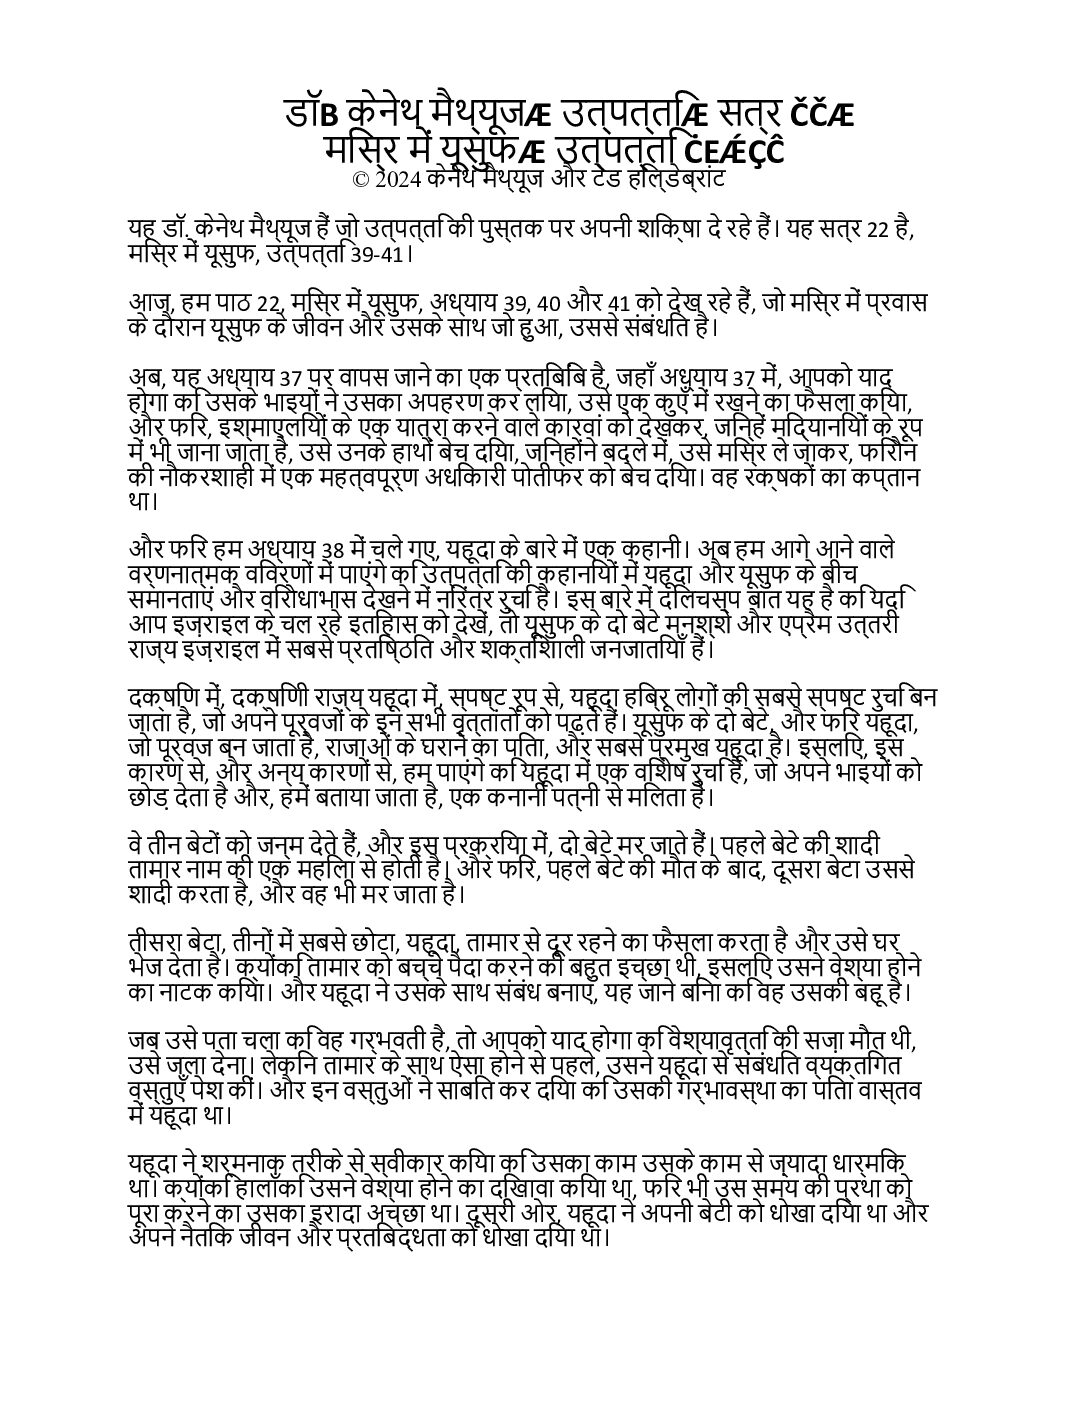 डॉB केनेथ मैथ्यूजÆ उत्पत्तिÆ सत्र ČČÆ
मिस्र में यूसुफÆ उत्पत्ति ĊEǼÇĈ
© 2024 केनेथ मैथ्यूज और टेड हिल्डेब्रांट
यह डॉ. केनेथ मैथ्यूज हैं जो उत्पत्ति की पुस्तक पर अपनी शिक्षा दे रहे हैं। यह सत्र 22 है,
मिस्र में यूसुफ, उत्पत्ति 39-41।
आज, हम पाठ 22, मिस्र में यूसुफ, अध्याय 39, 40 और 41 को देख रहे हैं, जो मिस्र में प्रवास
के दौरान यूसुफ के जीवन और उसके साथ जो हुआ, उससे संबंधित है।
अब, यह अध्याय 37 पर वापस जाने का एक प्रतिबिंब है, जहाँ अध्याय 37 में, आपको याद
होगा कि उसके भाइयों ने उसका अपहरण कर लिया, उसे एक कुएँ में रखने का फैसला किया,
और फिर, इश्माएलियों के एक यात्रा करने वाले कारवां को देखकर, जिन्हें मिद्यानियों के रूप
में भी जाना जाता है, उसे उनके हाथों बेच दिया, जिन्होंने बदले में, उसे मिस्र ले जाकर, फिरौन
की नौकरशाही में एक महत्वपूर्ण अधिकारी पोतीफर को बेच दिया। वह रक्षकों का कप्तान
था।
और फिर हम अध्याय 38 में चले गए, यहूदा के बारे में एक कहानी। अब हम आगे आने वाले
वर्णनात्मक विवरणों में पाएंगे कि उत्पत्ति की कहानियों में यहूदा और यूसुफ के बीच
समानताएं और विरोधाभास देखने में निरंतर रुचि है। इस बारे में दिलचस्प बात यह है कि यदि
आप इज़राइल के चल रहे इतिहास को देखें, तो यूसुफ के दो बेटे मनश्शे और एप्रैम उत्तरी
राज्य इज़राइल में सबसे प्रतिष्ठित और शक्तिशाली जनजातियाँ हैं।
दक्षिण में, दक्षिणी राज्य यहूदा में, स्पष्ट रूप से, यहूदा हिब्रू लोगों की सबसे स्पष्ट रुचि बन
जाता है, जो अपने पूर्वजों के इन सभी वृत्तांतों को पढ़ते हैं। यूसुफ के दो बेटे, और फिर यहूदा,
जो पूर्वज बन जाता है, राजाओं के घराने का पिता, और सबसे प्रमुख यहूदा है। इसलिए, इस
कारण से, और अन्य कारणों से, हम पाएंगे कि यहूदा में एक विशेष रुचि है, जो अपने भाइयों को
छोड़ देता है और, हमें बताया जाता है, एक कनानी पत्नी से मिलता है।
वे तीन बेटों को जन्म देते हैं, और इस प्रक्रिया में, दो बेटे मर जाते हैं। पहले बेटे की शादी
तामार नाम की एक महिला से होती है। और फिर, पहले बेटे की मौत के बाद, दूसरा बेटा उससे
शादी करता है, और वह भी मर जाता है।
तीसरा बेटा, तीनों में सबसे छोटा, यहूदा, तामार से दूर रहने का फैसला करता है और उसे घर
भेज देता है। क्योंकि तामार को बच्चे पैदा करने की बहुत इच्छा थी, इसलिए उसने वेश्या होने
का नाटक किया। और यहूदा ने उसके साथ संबंध बनाए, यह जाने बिना कि वह उसकी बहू है।
जब उसे पता चला कि वह गर्भवती है, तो आपको याद होगा कि वेश्यावृत्ति की सजा मौत थी,
उसे जला देना। लेकिन तामार के साथ ऐसा होने से पहले, उसने यहूदा से संबंधित व्यक्तिगत
वस्तुएँ पेश कीं। और इन वस्तुओं ने साबित कर दिया कि उसकी गर्भावस्था का पिता वास्तव
में यहूदा था।
यहूदा ने शर्मनाक तरीके से स्वीकार किया कि उसका काम उसके काम से ज्यादा धार्मिक
था। क्योंकि हालाँकि उसने वेश्या होने का दिखावा किया था, फिर भी उस समय की प्रथा को
पूरा करने का उसका इरादा अच्छा था। दूसरी ओर, यहूदा ने अपनी बेटी को धोखा दिया था और
अपने नैतिक जीवन और प्रतिबद्धता को धोखा दिया था।